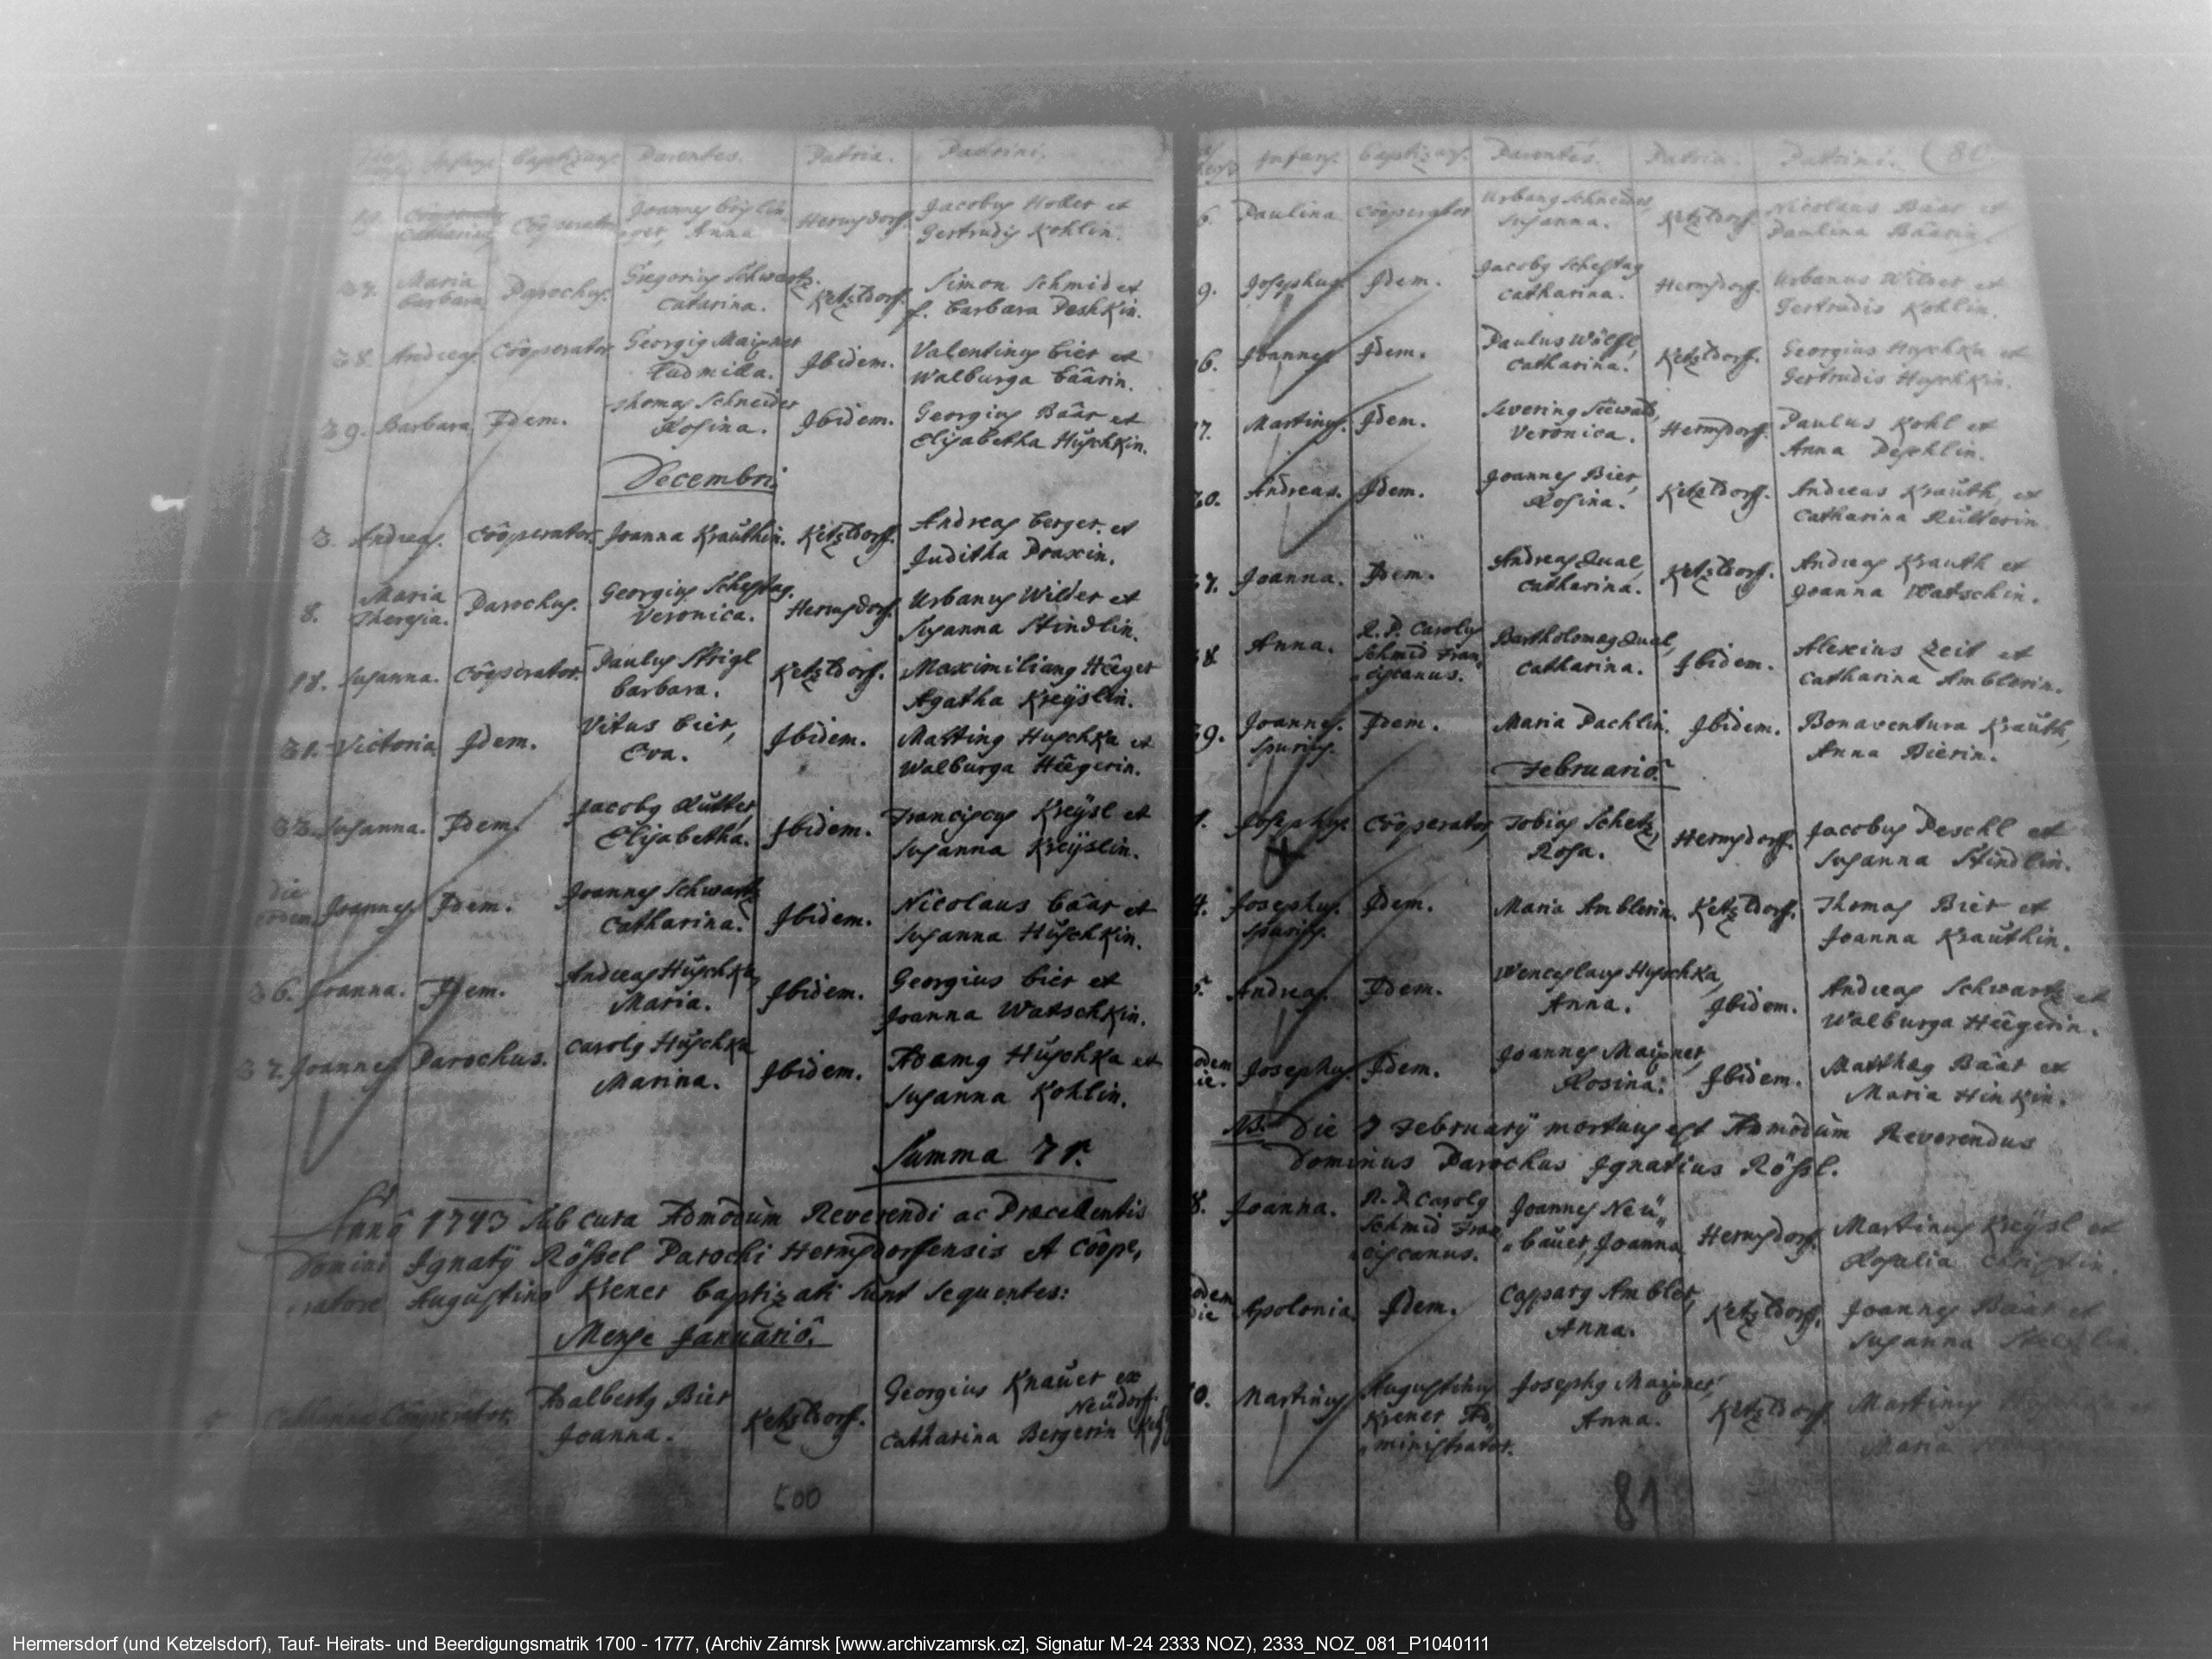 Infans. Baptizans. Parentes. Patria. Patrini.
19. Catharina Cooperator Joannes Anna Hermsdorf. Jacobus Holler et
Gertrudis Kohlin.
27. Maria Barbara Parochus. Gregorius Schwartz. Catarina. Ketzldorf. Simon Schmid et
f. Barbara Peshkin.
28. Andreas Cooperator Georgig Maixner Ludmilla. Ibidem. Valentinus Bier et
Walburga Bäärin.
29. Barbara Idem. Thomas Schneider Rosina. Ibidem. Georgius Bäär et
Elisabetha Huschkin.
Decembri.
3. Andreas. Cooperator. Joanna Krauthin. Ketzldorf. Andreas Berger. et
Juditha Praxin.
8. Maria Theresia. Parochus. Georgius Schestag. Veronica. Hermsdorf. Urbanus Wilder et
Susanna Stindlin.
18. Susanna. Cooperator. Paulus Strigl Barbara. Ketzldorf. Maximilians Heeger
Agatha Kreyslin.
21. Victoria Idem. Vitus Bier, Eva. Ibidem. Marting Huschka et
Walburga Heegerin.
22. Susanna. Idem. Jacobg Rutter, Elisabetha. Ibidem. Franciscus Kreysl et
Susanna Kreyslin.
die eodem Joannes Idem. Joannes Schwartz Catharina. Ibidem. Nicolaus Bäär et
Susanna Huschkin.
26. Joanna. Idem. Andreas Huschka, Maria. Ibidem. Georgius Bier et
Joanna Watschkin.
27. Joannes Parochus. Carolg Huschka Marina. Ibidem. Adamg Huschka et
Susanna Kohlin.
Summa 71.
Anno 1743 sub cura Admodum Reverendi ac Praecellentis
Domini Ignatÿ Rößel Parochi Hermsdorfensis et Coope,
ratore Augustino Krener baptizati sunt sequentes:
Mense Januario.
5 Catharina Cooperator. Adalbertg Bier Joanna. Ketzldorf. Georgius Knauer ex
Neudorf.
Catharina Bergerin
500
Infans. Baptizans. Parentes. Patria. Patrini. 81
6. Paulina Cooperator Urbang Schneider, Susanna. Ketzldorf. Nicolaus Bäär et
Paulina Bäärin.
9. Josephus. Idem. Jacobg Schestag Catharina. Hermsdorf. Urbanus Wilder et
Gertrudis Kohlin.
16. Joannes Idem. Paulus Wölfl, Catharina. Ketzldorf. Georgius Huschka et
Gertrudis Huschkin.
17. Martinus. Idem. Severing Seewald, Veronica. Hermsdorf. Paulus Kohl et
Anna Peschlin.
20. Andreas. Idem. Joannes Bier, Rosina. Ketzldorf. Andreas Krauth, et
Catharina Rutterin.
27. Joanna. Idem. Andreas Qual, Catharina. Ketzldorf. Andreas Krauth et
Joanna Watschin.
28. Anna. R. P. Carolus Schmid Fran, ciscanus. Bartholomaeg Qual, Catharina. Ibidem. Alexius Zeit et
Catharina Amblerin.
29. Joannes. Spurius. Idem. Maria Pachlin. Ibidem. Bonaventura Krauth,
Anna Bierin.
Februario.
1. Josephus Cooperator, Tobias Schetz, Rosa. Hermsdorf. Jacobus Peschl et
Susanna Stindlin.
4. Josephus. Spurius. Idem. Maria Amblerin. Ketzldorf. Thomas Bier et
Joanna Krauthin.
5. Andreas. Idem. Wenceslaus Huschka, Anna. Ibidem. Andreas Schwartz et
Walburga Heegerin.
eodem die. Josephus. Idem. Joannes Maixner, Rosina. Ibidem. Matthaeg Bäär et
Maria Hinkin.
NB. Die 7 Februarÿ mortuus est Admodum Reverendus
Dominus Parochus Ignatius Rößl.
8. Joanna. R. P. Carolg Schmid Fran, ciscanus. Joannes Neu, bauer, Joanna Hermsdorf. Martinus Kreysl et
Rosalia Christin.
eodem die Apolonia. Idem. Casparg Ambler, Anna. Ketzldorf. Joannes Bäär et
Susanna
10. Martinus Augustinus Krener Ad, ministrator. Josephg Maixner, Anna. Ketzldorf. Martinus
Maria
81
Hermersdorf (und Ketzelsdorf), Tauf- Heirats- und Beerdigungsmatrik 1700 - 1777, (Archiv Zámrsk [www.archivzamrsk.cz], Signatur M-24 2333 NOZ), 2333_NOZ_081_P1040111